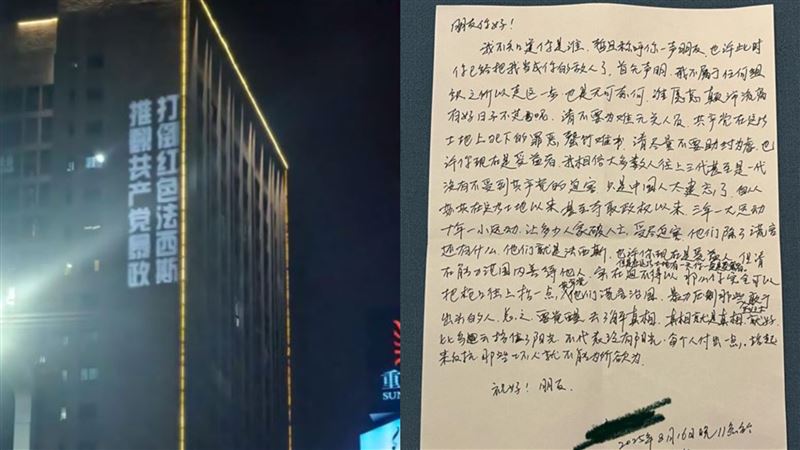 打倒红色法西斯
推翻共产党暴政
重
SUN
朋友你好！
我不知道你是谁，暂且称呼你一声朋友，也许此时
你已经把我当成你的敌人了，首先声明，我不属于任何组
织之所以走这一步也是无可奈何，谁愿意颠沛流离
有好日子不过呢，请不要为难无关人员，共产党在这片
土地上犯下的罪恶，罄竹难书，请尽量不要助纣为虐，也
许你现在是受益者，我相信大多数人往上三代甚至是一代
没有不受到共产党的迫害，只是中国人太健忘了，自从
在这片土地以来甚至夺取政权以来，三年一大运动
十年一小运动，让多少人家破人亡，受尽迫害，他们除了谎言
还有什么，他们就是法西斯，也许你现在是受益人，但请
在能力范围内善待他人，实在迫不得以，那么你完全可以
把枪口往上抬一点，他们谎言治国，暴力压制那些敢于
出来的人，总之要记得去了解真相，真相就是真相，就好
比乌云挡住了阳光，不代表没有阳光，每个人付出一点，站起
来反抗，那些人就不能为所欲为。
祝好！朋友。
2025年8月16日晚11点